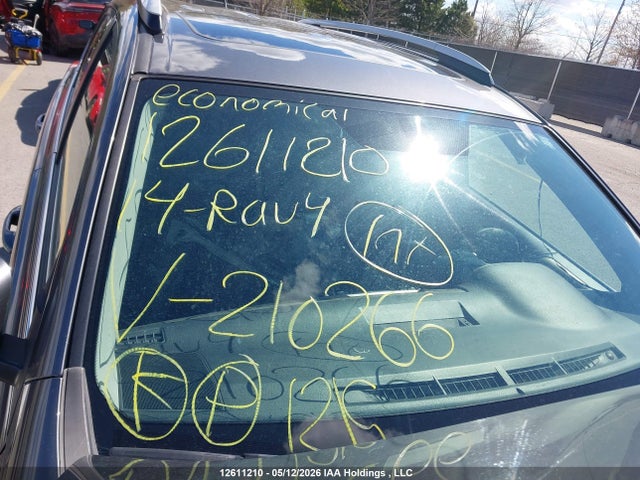 economical
12611210
14-RAV4
INX
V-210266
K P 12G
12611210 - 05/12/2026 IAA Holdings , LLC